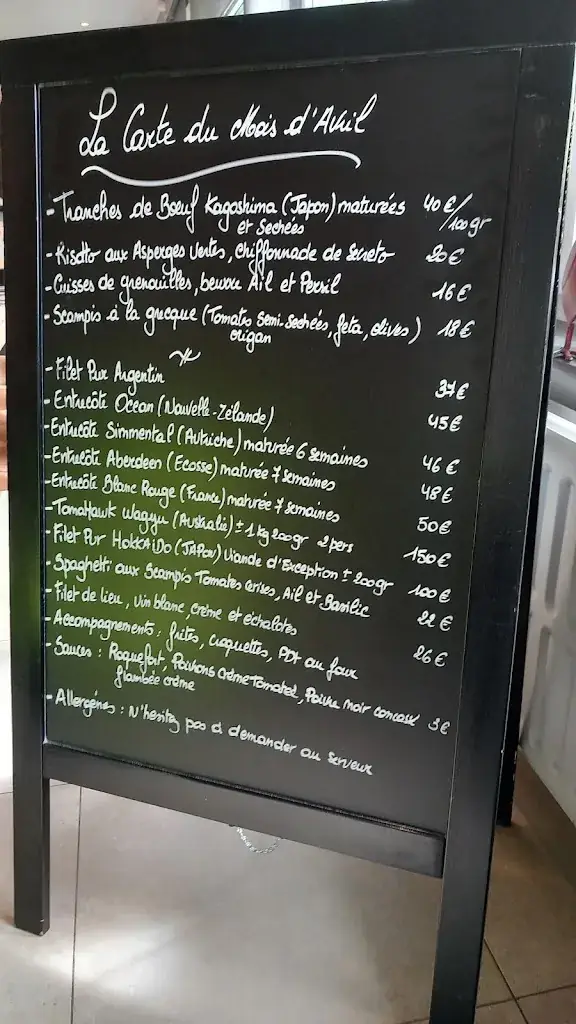 La Carte du Mois d'Avril
- Tranches de Bœuf Kagoshima (Japon) maturées 40€/100gr
et Sechées
- Risotto aux Asperges vertes, chiffonnade de secreto 20€
- Cuisses de grenouilles, beurre Ail et Persil 16€
- Scampis à la grecque (Tomates semi-sechées, feta, olives) 18€
origan
- Filet Pur Argentin 37€
- Entrecôte Ocean (Nouvelle-Zélande) 45€
- Entrecôte Simmental (Autriche) maturée 6 semaines 46€
- Entrecôte Aberdeen (Ecosse) maturée 7 semaines 48€
- Entrecôte Blanc Rouge (France) maturée 7 semaines 50€
- Tomahawk Wagyu (Australie) ± 1kg200gr 2pers 150€
- Filet Pur HOKKAIDO (JAPON) Viande d'Exception ± 200gr 100€
- Spaghetti aux Scampis Tomates cerises, Ail et Basilic 22€
- Filet de lieu, vin blanc, crème et échalotes 26€
- Accompagnements: frites, croquettes, PDT au four
- Sauces: Roquefort, Poivrons Crème Tomates, Poivre noir concassé 3€
flambée crème
- Allergénes: N'hesitez pas à demander au serveur